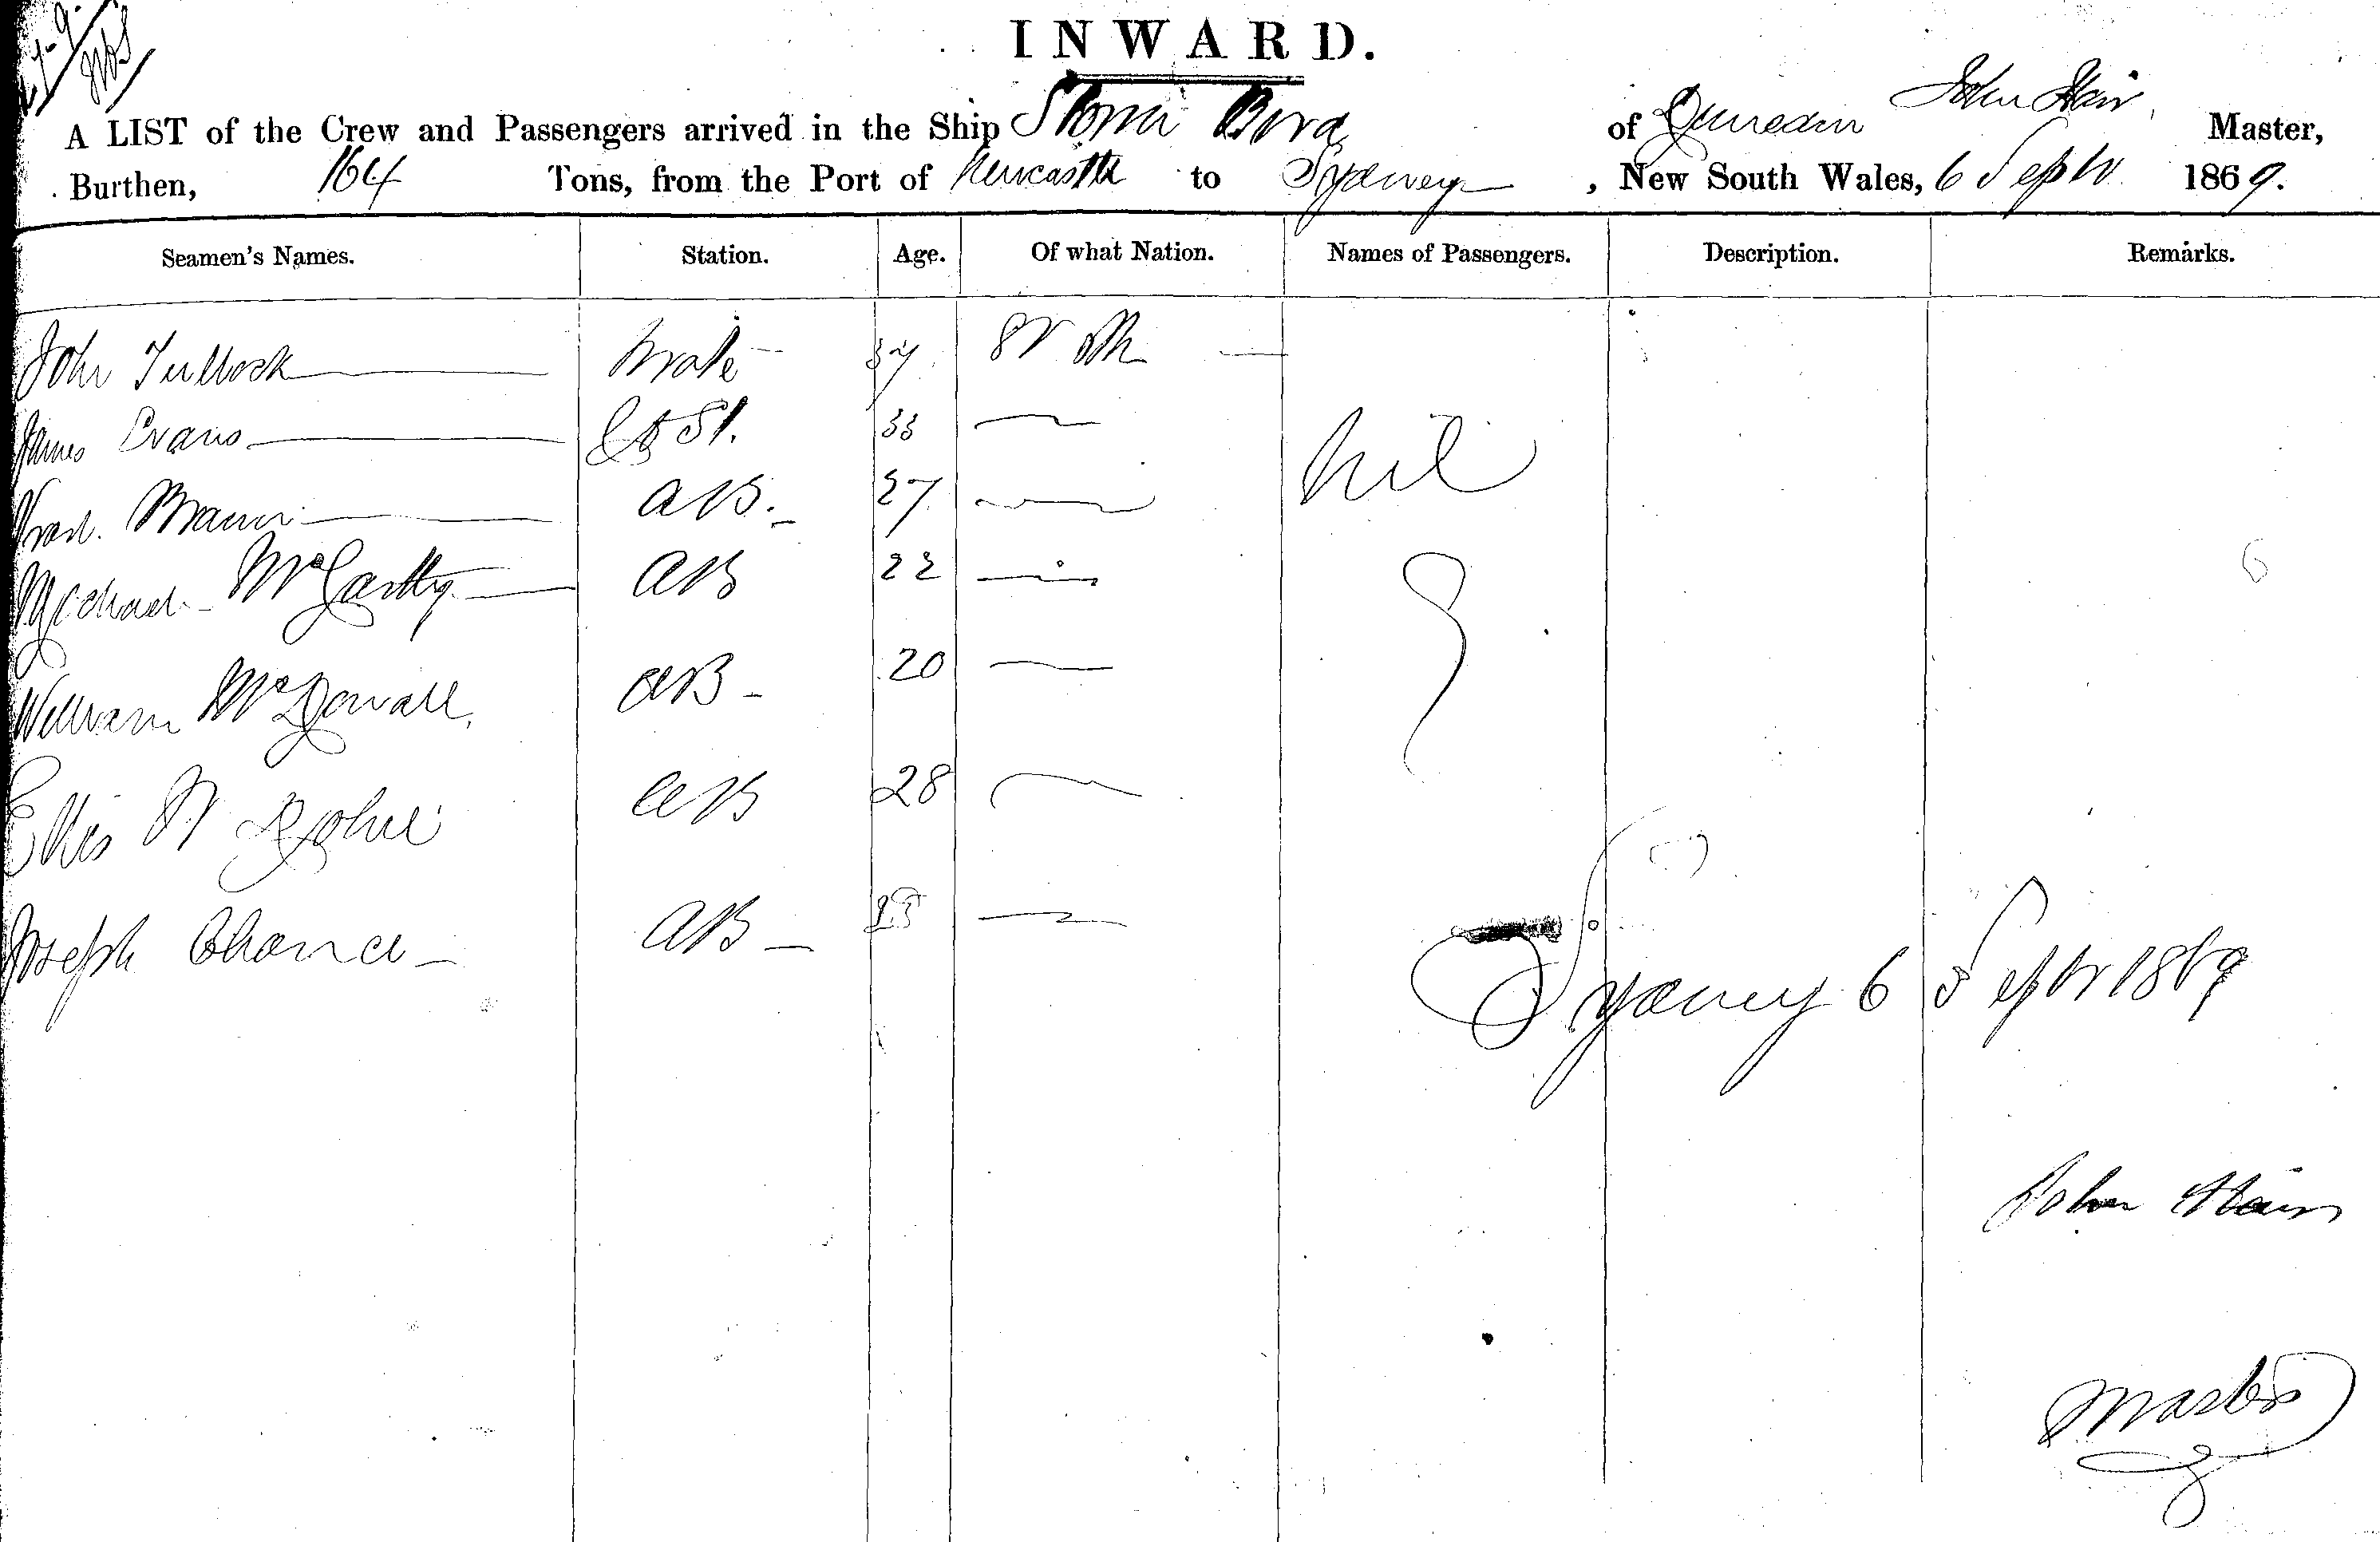 INWARD.
A LIST of the Crew and Passengers arrived in the Ship Storm Bird of Dunedin John Hair, Master,
Burthen, 164 Tons, from the Port of Newcastle to Sydney, New South Wales, 6 Septr 1869.
Seamen's Names. Station. Age. Of what Nation. Names of Passengers. Description. Remarks.
John Tullock Mate 37
James Evans St. 33
Mann AB. 27 nil
Michael McCarthy AB 22
William McDowall AB 20
Ellis AB 28
Joseph Chance AB 25
Sydney 6 Septr 1869
John Hair
Master